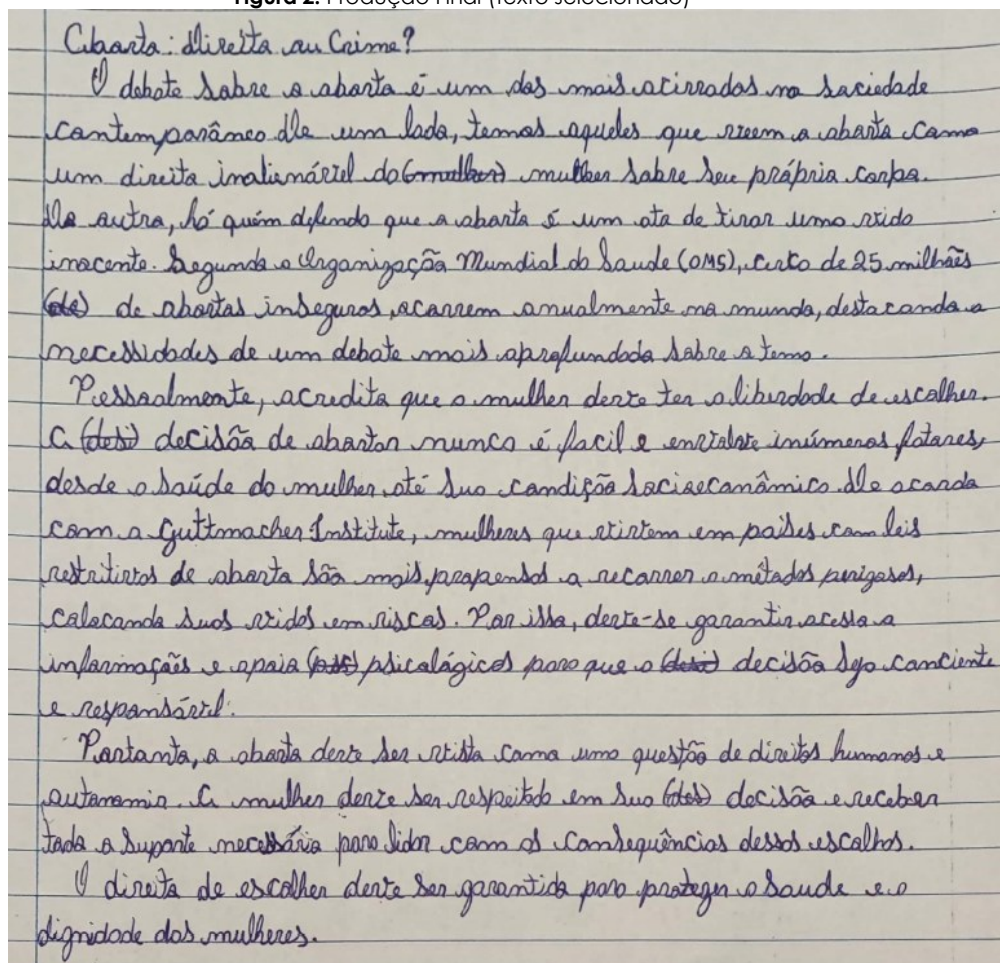 Figura 2. Produção Final (Texto selecionado)
Aborto: direito ou Crime?
O debate sobre o aborto é um dos mais acirrados na sociedade
contemporânea De um lado, temos aqueles que veem o aborto como
um direito inalienável da (mulher) mulher sobre seu próprio corpo.
De outro, há quém defenda que o aborto é um ato de tirar uma vida
inocente. Segundo a Organização Mundial da Saude (OMS), cerca de 25 milhões
(de) de abortos inseguros, ocorrem anualmente no mundo, destacando a
necessidades de um debate mais aprofundado sobre o tema.
Pessoalmente, acredito que a mulher deve ter a liberdade de escolher.
A (desi) decisão de abortar nunca é facil e envolve inúmeros fatores,
desde a saúde da mulher até sua condição socioeconômica. De acordo
com o Guttmacher Institute, mulheres que vivem em países com leis
restritivas de aborto são mais propensas a recorrer a métodos perigosos,
colocando suas vidas em riscos. Por isso, deve-se garantir acesso a
informações e apoio psicológicos para que a (desi) decisão seja conciente
e responsável.
Portanto, o aborto deve ser vista como uma questão de direitos humanos e
autonomia. A mulher deve ser respeitada em sua (des) decisão e receber
todo o suporte necessário para lidar com as consequências dessas escolhas.
O direito de escolher deve ser garantido para proteger a saude e a
dignidade das mulheres.